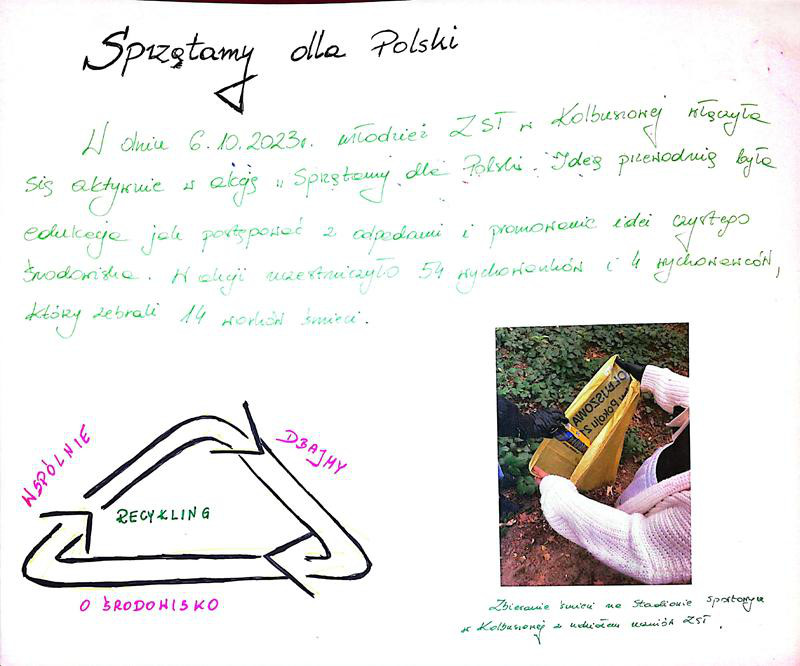 Sprzątamy dla Polski
W dniu 6.10.2023r. młodzież ZST w Kolbuszowej włączyła
się aktywnie w akcję „Sprzątamy dla Polski. Ideą przewodnią była
edukacja jak postępować z odpadami i promowanie idei czystego
środowiska. W akcji uczestniczyło 54 wychowanków i 4 wychowawców,
który zebrali 14 worków śmieci.
WSPÓLNIE
DBAJMY
RECYKLING
O ŚRODOWISKO
OLBUSZOWA
Pokoju 2
Zbieranie śmieci na Stadionie Sportowym
w Kolbuszowej z udziałem uczniów ZST.